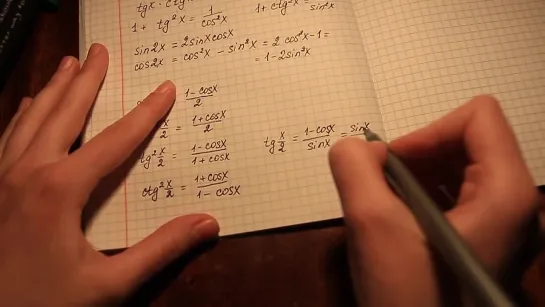 tgx · ctgx
1 + tg²x = 1/cos²x
1 + ctg²x = 1/sin²x
sin2x = 2sinxcosx
cos2x = cos²x - sin²x = 2cos²x-1 =
= 1-2sin²x
1-cosx/2
x/2 = 1+cosx/2
tg² x/2 = 1-cosx/1+cosx
ctg² x/2 = 1+cosx/1-cosx
tg x/2 = 1-cosx/sinx = sinx